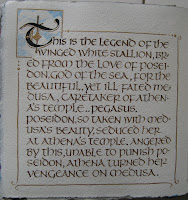 This is the legend of the
winged white stallion, br
ed from the love of posei
don, god of the sea, for the
beautiful, yet ill fated me
dusa, caretaker of athen
a's temple... pegasus.
poseidon, so taken with med
usa's beauty, seduced her
at athena's temple. angered
by this, unable to punish po
seidon, athena turned her
vengeance on medusa.